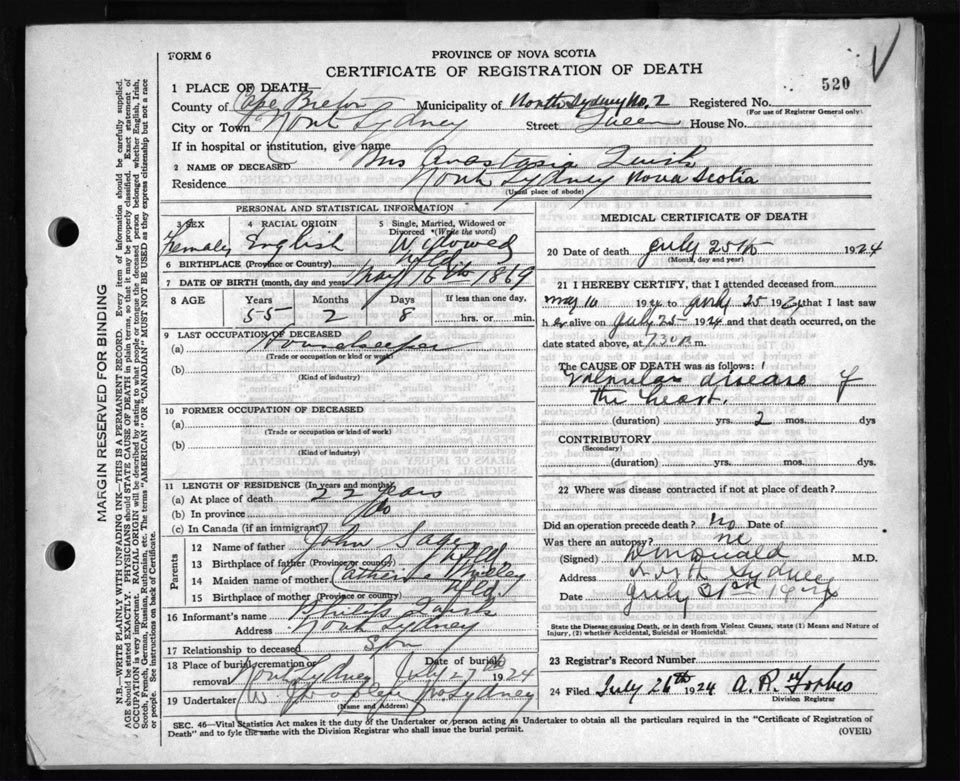 FORM 6
PROVINCE OF NOVA SCOTIA
CERTIFICATE OF REGISTRATION OF DEATH
520
1 PLACE OF DEATH
County of Cape Breton Municipality of North Sydney No. 2 Registered No.
(For use of Registrar General only)
City or Town North Sydney Street Queen House No.
If in hospital or institution, give name
2 NAME OF DECEASED Mrs Anastasia Quirk
Residence North Sydney Nova Scotia
(Usual place of abode)
PERSONAL AND STATISTICAL INFORMATION
3 SEX 4 RACIAL ORIGIN 5 Single, Married, Widowed or Divorced (Write the word)
Female English Widowed
6 BIRTHPLACE (Province or Country) Nfld
7 DATE OF BIRTH (month, day and year) May 1869
8 AGE Years Months Days If less than one day,
55 2 8 hrs. or min.
9 LAST OCCUPATION OF DECEASED
(a) Housekeeper
(Trade or occupation or kind of work)
(b)
(Kind of industry)
10 FORMER OCCUPATION OF DECEASED
(a)
(Trade or occupation or kind of work)
(b)
(Kind of industry)
11 LENGTH OF RESIDENCE (In years and months)
(a) At place of death 22 years
(b) In province do
(c) In Canada (if an immigrant)
Parents
12 Name of father John Sage
13 Birthplace of father (Province or country) Nfld
14 Maiden name of mother Catherine
15 Birthplace of mother (Province or country) Nfld
16 Informant's name Philip Quirk
Address North Sydney
17 Relationship to deceased Son
18 Place of burial, cremation or removal North Sydney Date of burial July 27 1924
19 Undertaker No. Sydney
(Name and Address)
MEDICAL CERTIFICATE OF DEATH
20 Date of death July 25th 1924
(Month, day and year)
21 I HEREBY CERTIFY, that I attended deceased from
May 10 1924 to July 25 1924 that I last saw
her alive on July 25 1924 and that death occurred, on the
date stated above, at 7.30 m.
The CAUSE OF DEATH was as follows:
Valvular disease of
the heart.
(duration) yrs. 2 mos. dys
CONTRIBUTORY
(Secondary)
(duration) yrs. mos. dys.
22 Where was disease contracted if not at place of death?
Did an operation precede death? no Date of
Was there an autopsy? no
(Signed) M.D.
Address North Sydney
Date July 1924
State the Disease causing Death, or in death from Violent Causes, state (1) Means and Nature of Injury, (2) whether Accidental, Suicidal or Homicidal.
23 Registrar's Record Number
24 Filed July 26th 1924 A. R. Forbes
Division Registrar
SEC. 46—Vital Statistics Act makes it the duty of the Undertaker or person acting as Undertaker to obtain all the particulars required in the "Certificate of Registration of
Death" and to fyle the same with the Division Registrar who shall issue the burial permit. (OVER)
MARGIN RESERVED FOR BINDING
N.B.—WRITE PLAINLY WITH UNFADING INK—THIS IS A PERMANENT RECORD. Every item of information should be carefully supplied.
AGE should be stated EXACTLY. PHYSICIANS should STATE CAUSE OF DEATH in plain terms, so that it may be properly classified. Exact statement of
OCCUPATION is very important. RACIAL ORIGIN will be described by stating to what people or tongue the deceased person belonged whether English, Irish,
Scotch, French, German, Russian, Ruthenian, etc. The terms "AMERICAN" or "CANADIAN" MUST NOT BE USED as they express citizenship but not a race
or people. See instructions on back of Certificate.